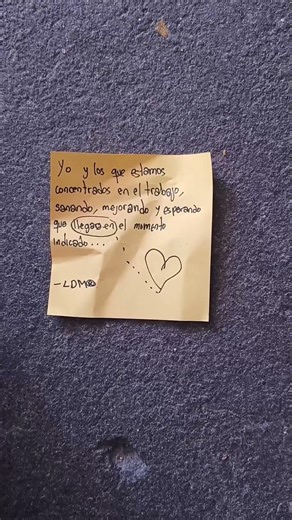 Yo y los que estamos
concentrados en el trabajo,
sanando, mejorando y esperando
que llegas en el mumento
indicado...
-LDM